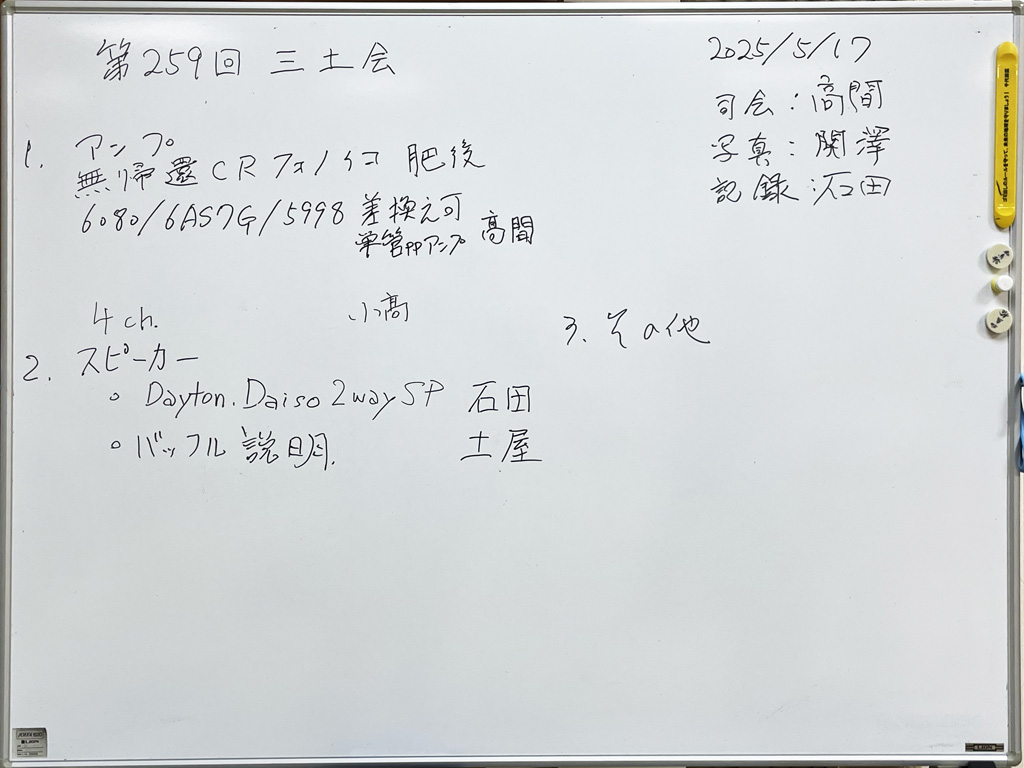 第259回 三土会
2025/5/17
司会：高間
写真：関澤
記録：石田
1. アンプ
無帰還 CR フォノイコ 肥後
6080/6AS7G/5998 差換え可
単管ppアンプ 高間
4ch. 小高
2. スピーカー
○ Dayton.Daiso 2way SP 石田
○ バッフル 説明. 土屋
3. その他